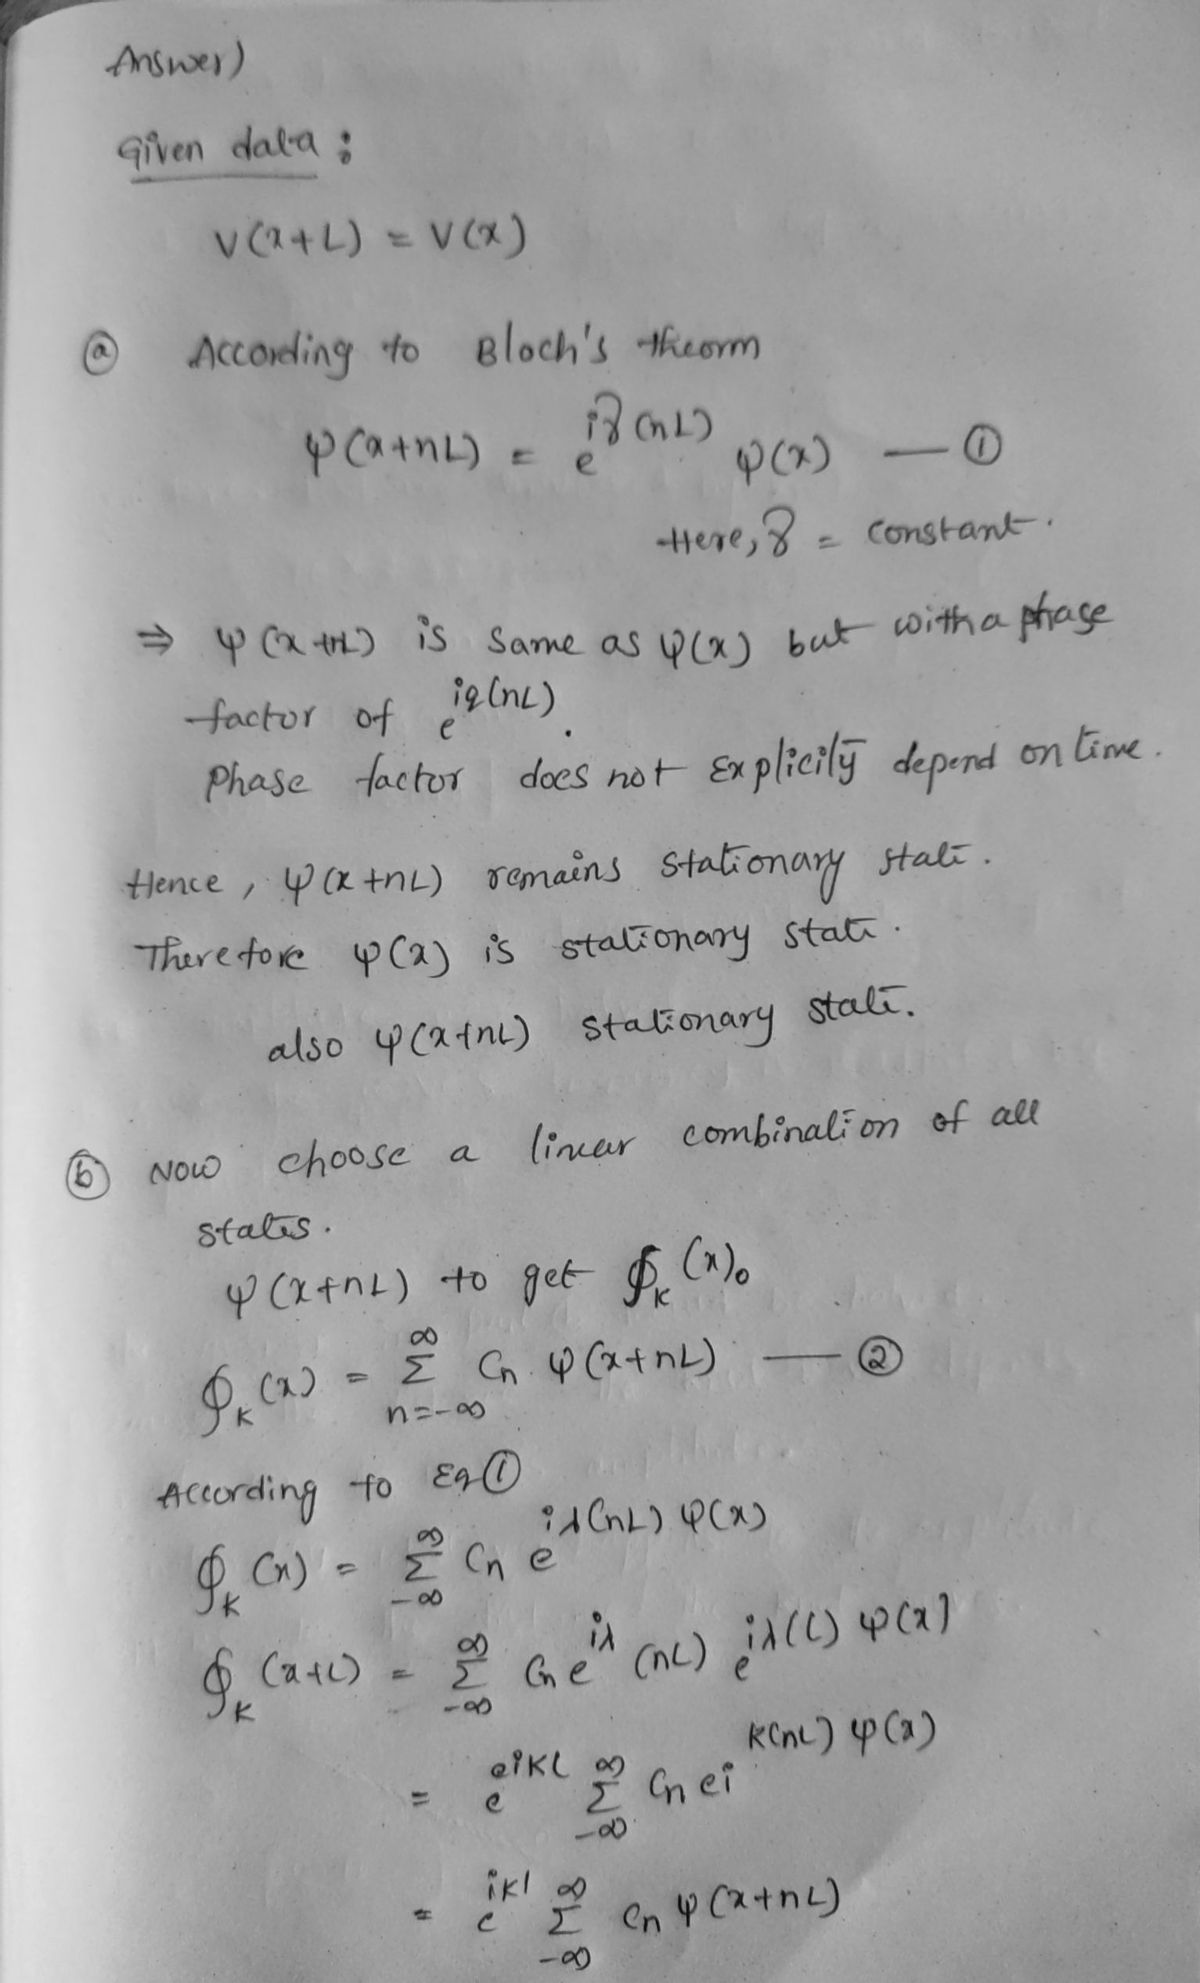 Answer)
Given data :
V(x+L) = V(x)
(a) According to Bloch's theorm
ψ(x+nL) = e^{iγ(nL)} ψ(x) — ①
Here, γ = constant.
⇒ ψ(x+nL) is same as ψ(x) but with a phase
factor of e^{iq(nL)}.
Phase factor does not Explicily depend on time.
Hence, ψ(x+nL) remains stationary state.
Therefore ψ(x) is stationary state.
also ψ(x+nL) stationary state.
(b) Now choose a linear combination of all
states.
ψ(x+nL) to get ϕ_K(x).
ϕ_K(x) = ∑_{n=-∞}^{∞} Cn ψ(x+nL) — ②
According to Eq ①
ϕ_K(x) = ∑_{-∞}^{∞} Cn e^{iλ(nL)} ψ(x)
ϕ_K(x+L) = ∑_{-∞}^{∞} Cn e^{iλ} (nL) e^{iλ(L)} ψ(x)
= e^{eiKL} ∑_{-∞}^{∞} Cn ei^{K(nL)} ψ(x)
= e^{ikl} ∑_{-∞}^{∞} Cn ψ(x+nL)